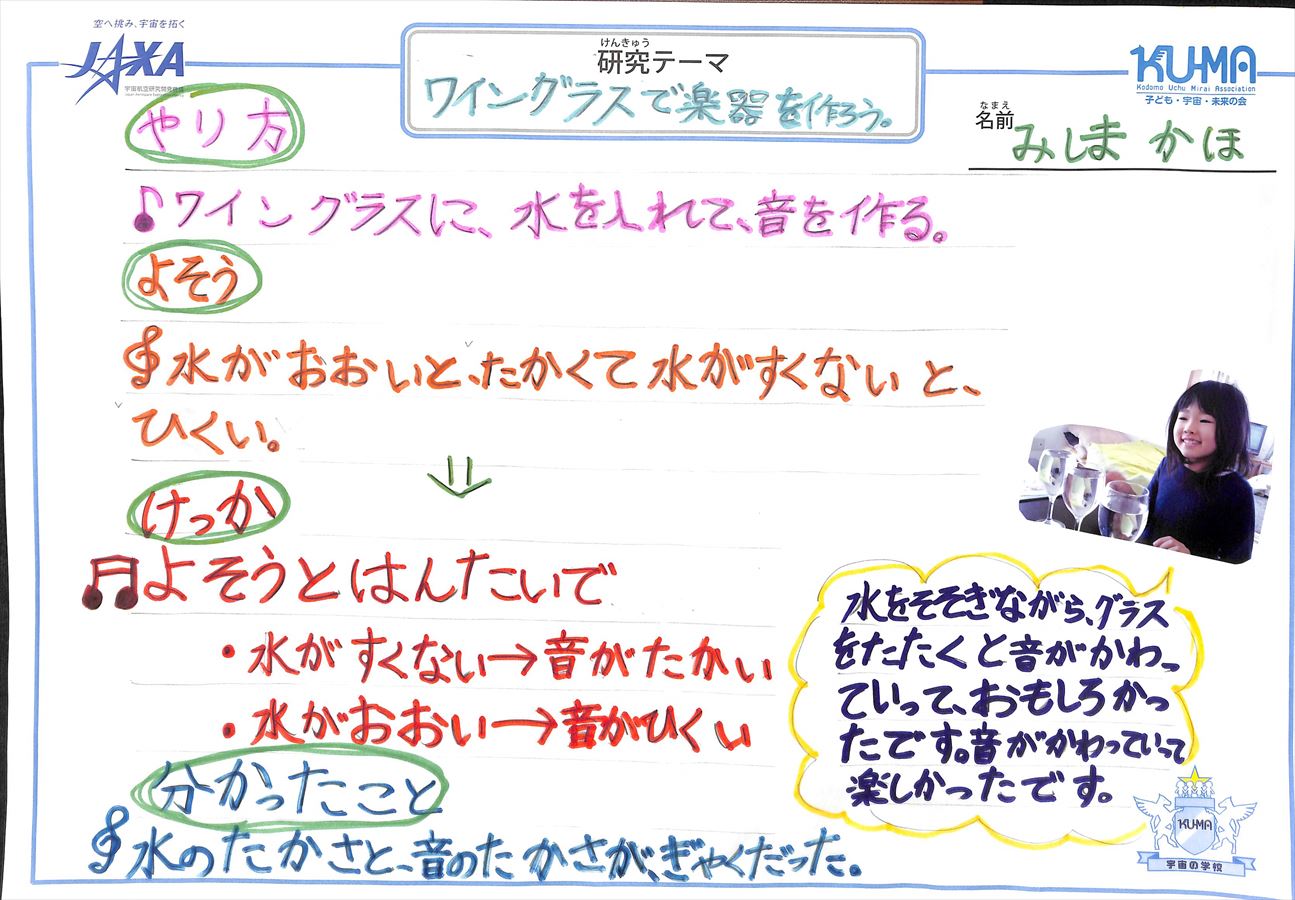 空へ挑み、宇宙を拓く
JAXA
宇宙航空研究開発機構
Japan Aerospace Exploration Agency
けんきゅう
研究テーマ
ワイングラスで楽器を作ろう。
KU-MA
Kodomo Uchu Mirai Association
子ども・宇宙・未来の会
なまえ
名前 みしま かほ
やり方
ワイングラスに、水を入れて、音を作る。
よそう
水がおおいと、たかくて水がすくないと、
ひくい。
けっか
よそうとはんたいで
・水がすくない→音がたかい
・水がおおい→音がひくい
分かったこと
水のたかさと、音のたかさが、ぎゃくだった。
水をそそぎながら、グラス
をたたくと音がかわっ
ていって、おもしろかっ
たです。音がかわっていって
楽しかったです。
KU-MA
宇宙の学校